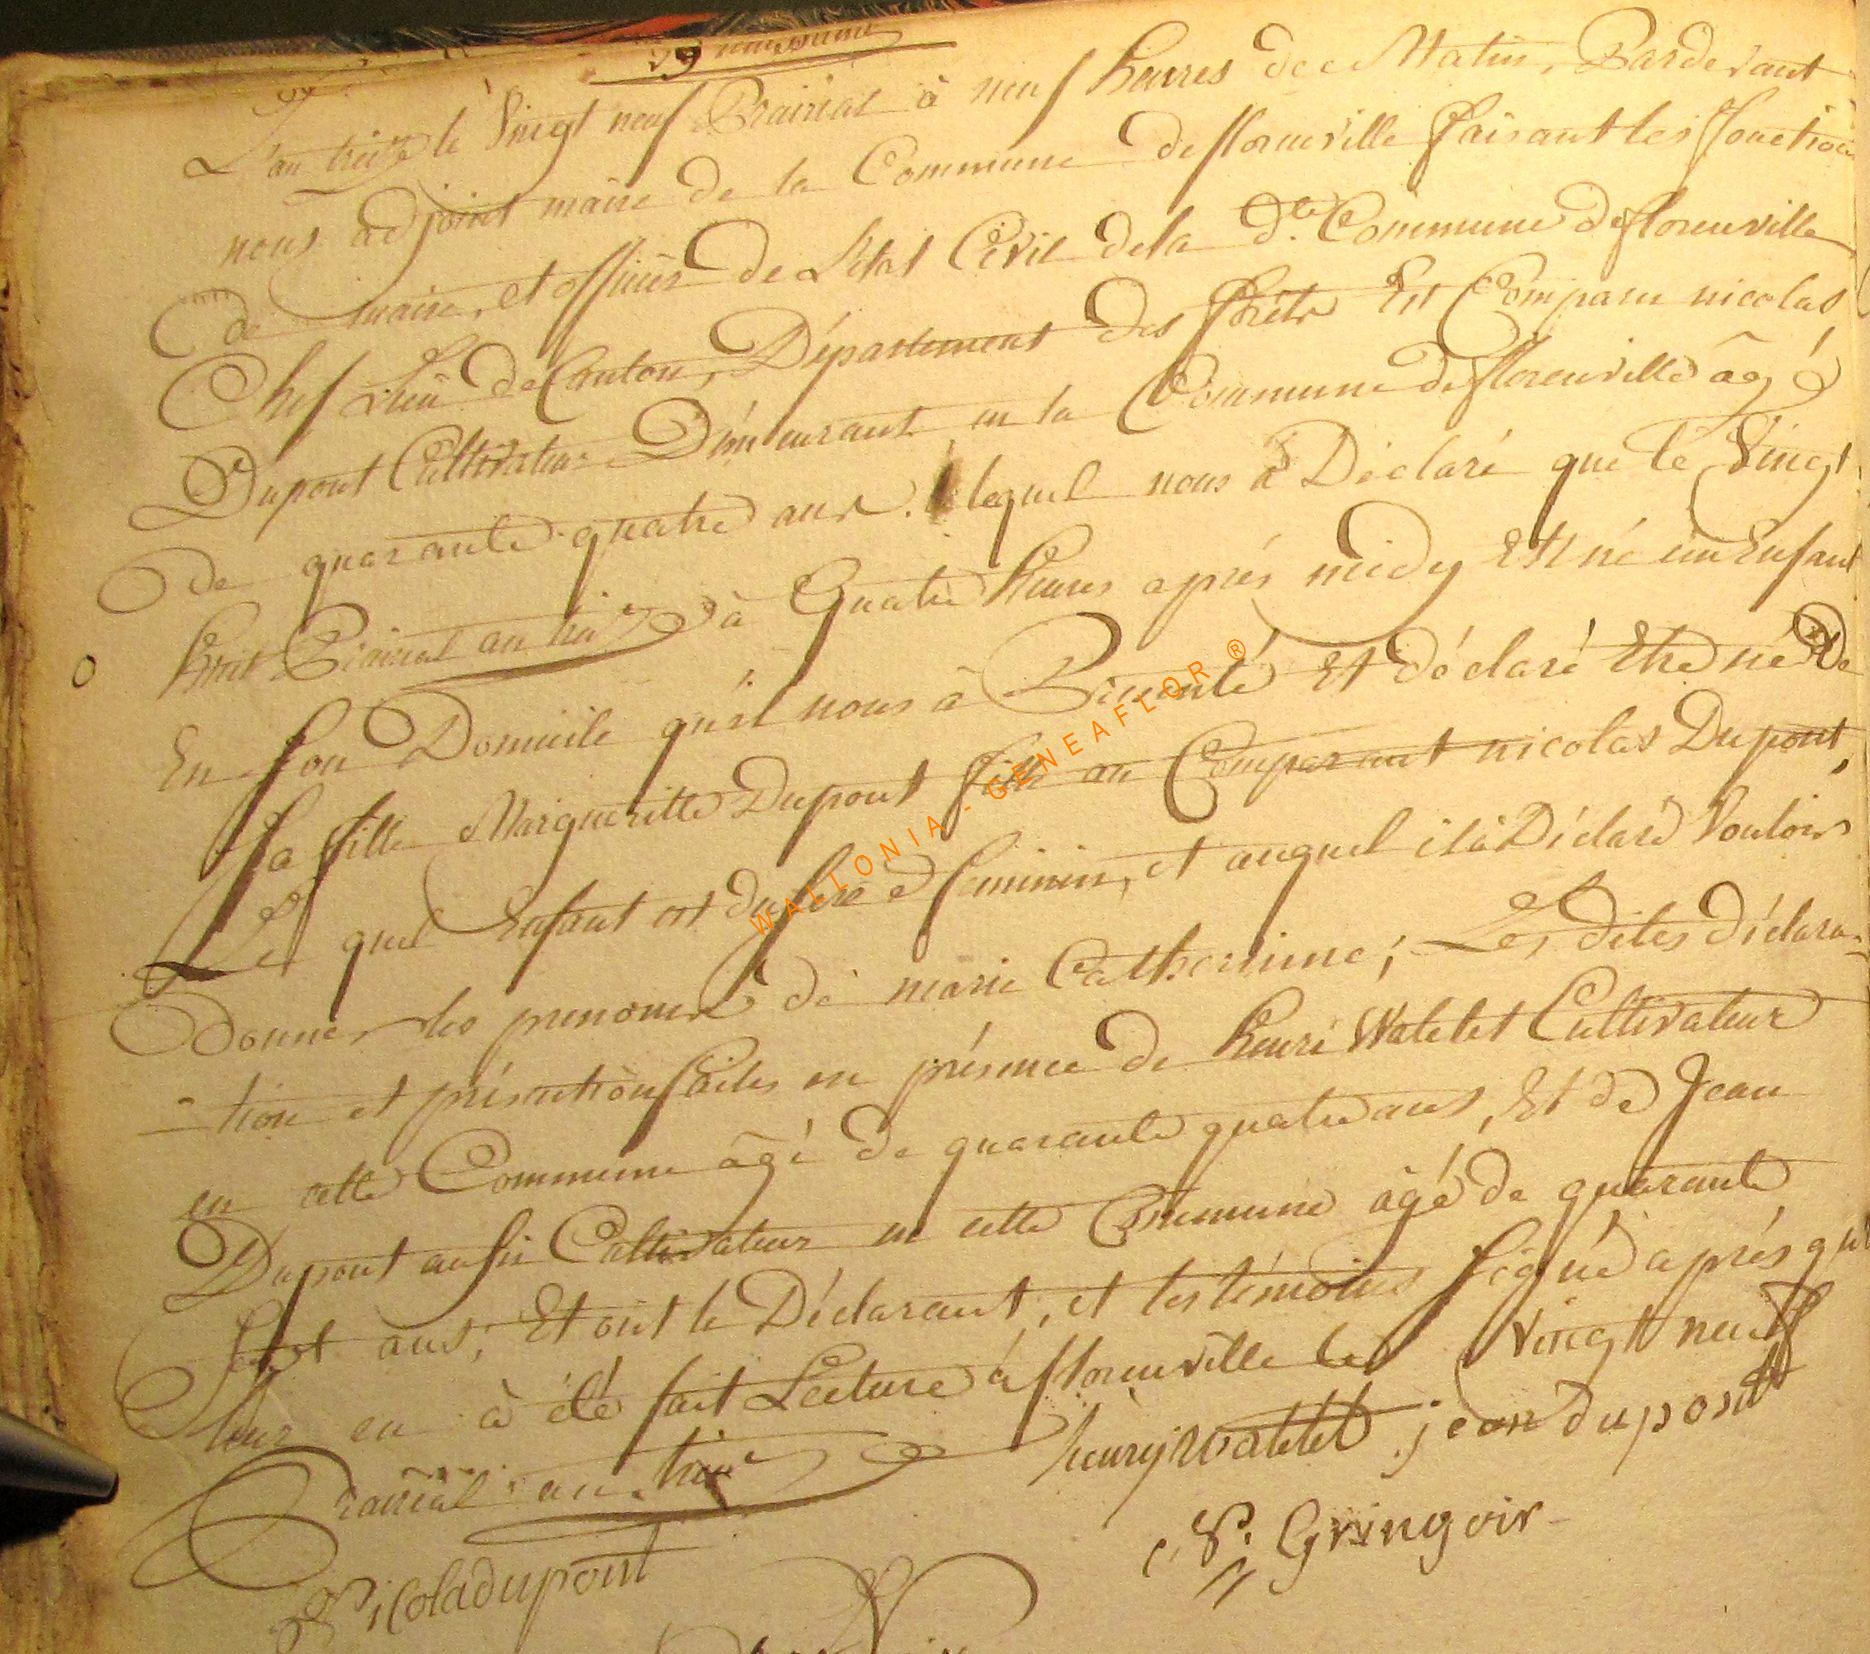 29 naissance
L'an treize le Vingt neuf Prairial à neuf heures de Matin, Pardevant
nous adjoint maire de la Commune de florenville faisant les fonctions
de maire, et officier de L'etat Civil de la d.te Commune de florenville
Chef Lieu de Canton, Département des forêts Est Comparu nicolas
Dupont Cultivateur Demeurant en la Commune de florenville âgé
de quarante quatre ans. lequel nous à Déclaré que le Vingt
huit Prairial an treize à Quatre heures après midy Est né un Enfant
En son Domicile qu'il nous à Présenté Et déclaré Etre né De
sa fille Margueritte Dupont fille au Comparant nicolas Dupont,
Le quel Enfant est du sexe feminin, et auquel il à Déclaré Vouloir
donner les prenoms de marie Catherinne; Les dites déclara-
-tion et présentation faites en présence de henri Watelet Cultivateur
en cette Commune âgé de quarante quatre ans, Et de Jean
Dupont aussi Cultivateur en cette Commune âgé de quarante
sept ans; Et ont le Déclarant, et les témoins signé après qu'
leur en à été fait Lecture à florenville le Vingt neuf
Prairial an treize
henry watelet jean dupont
N. Gringoir
Nicola dupont
WALLONIA-GENEAFLOR ®